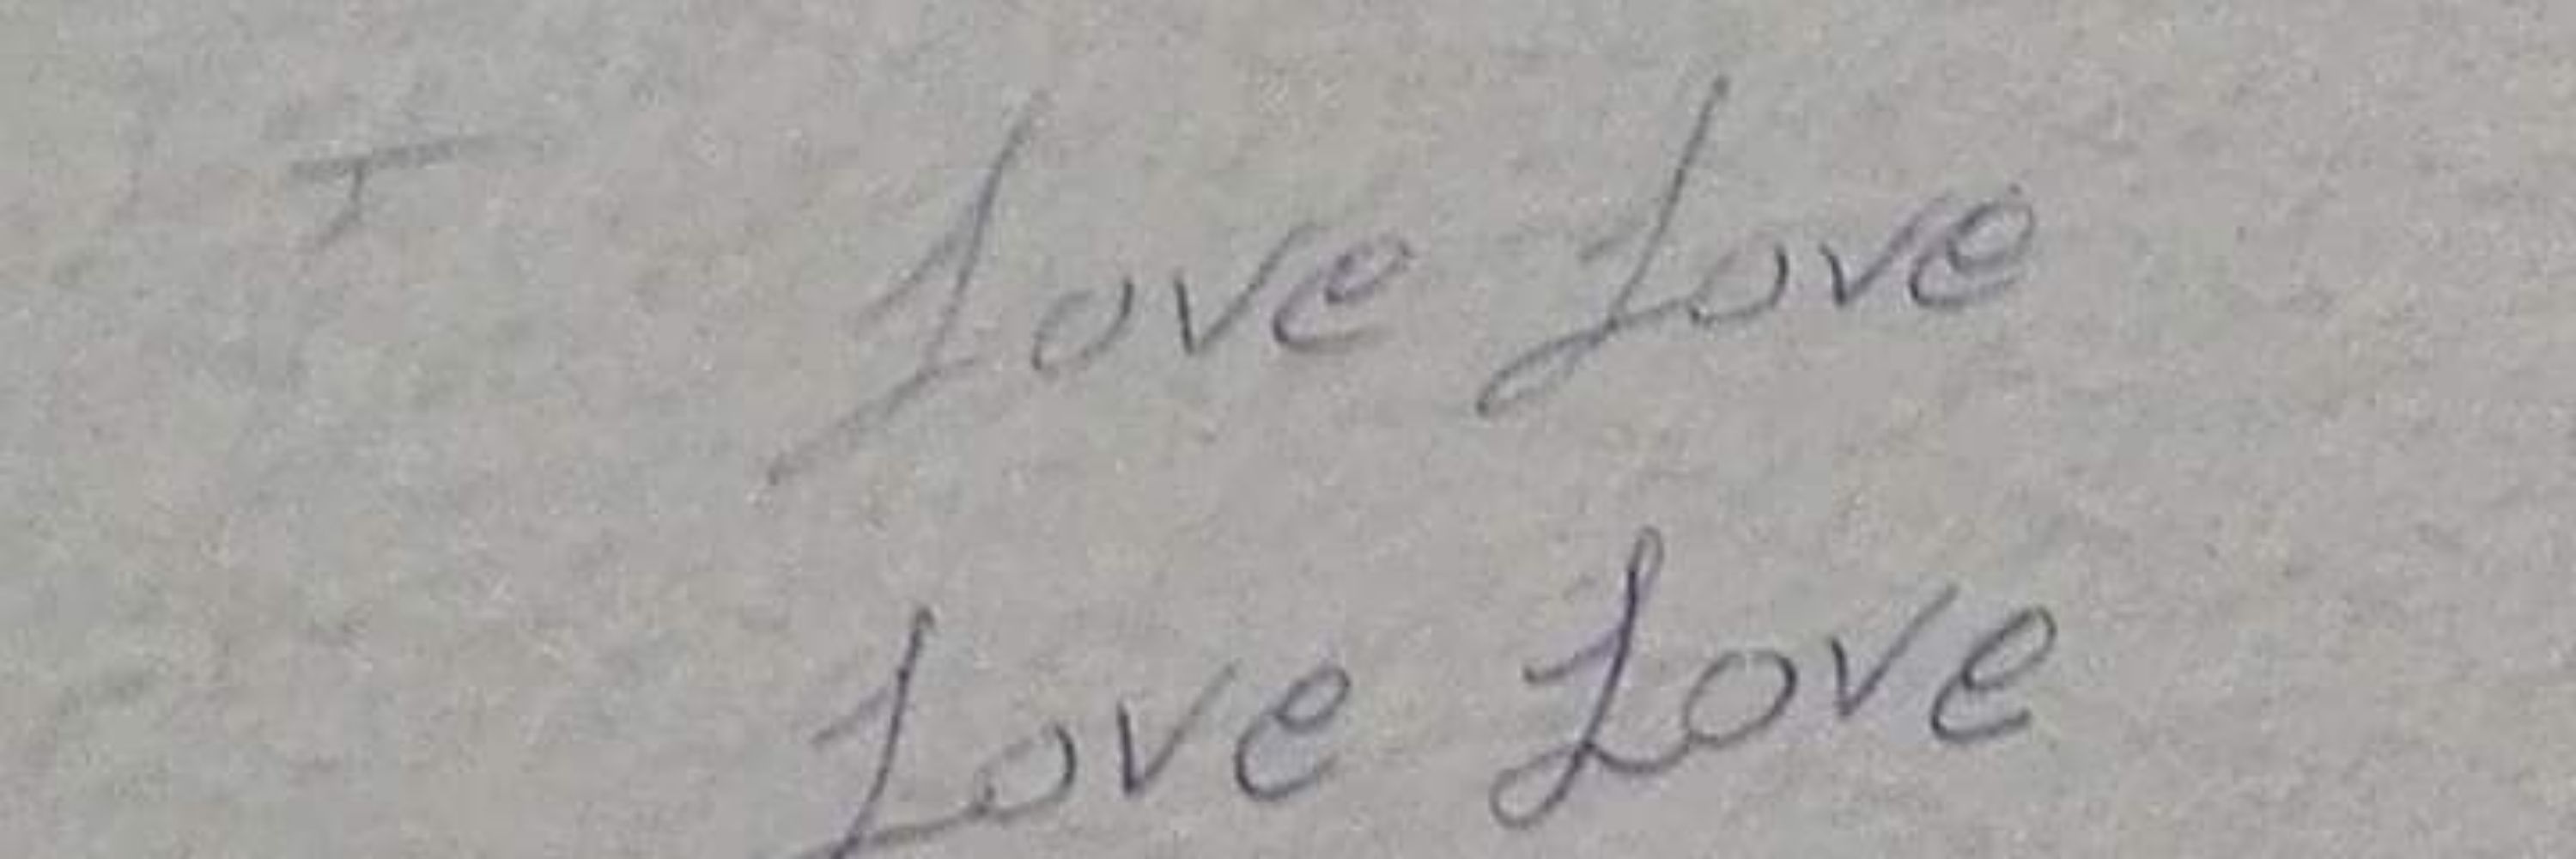 I Love Love
Love Love